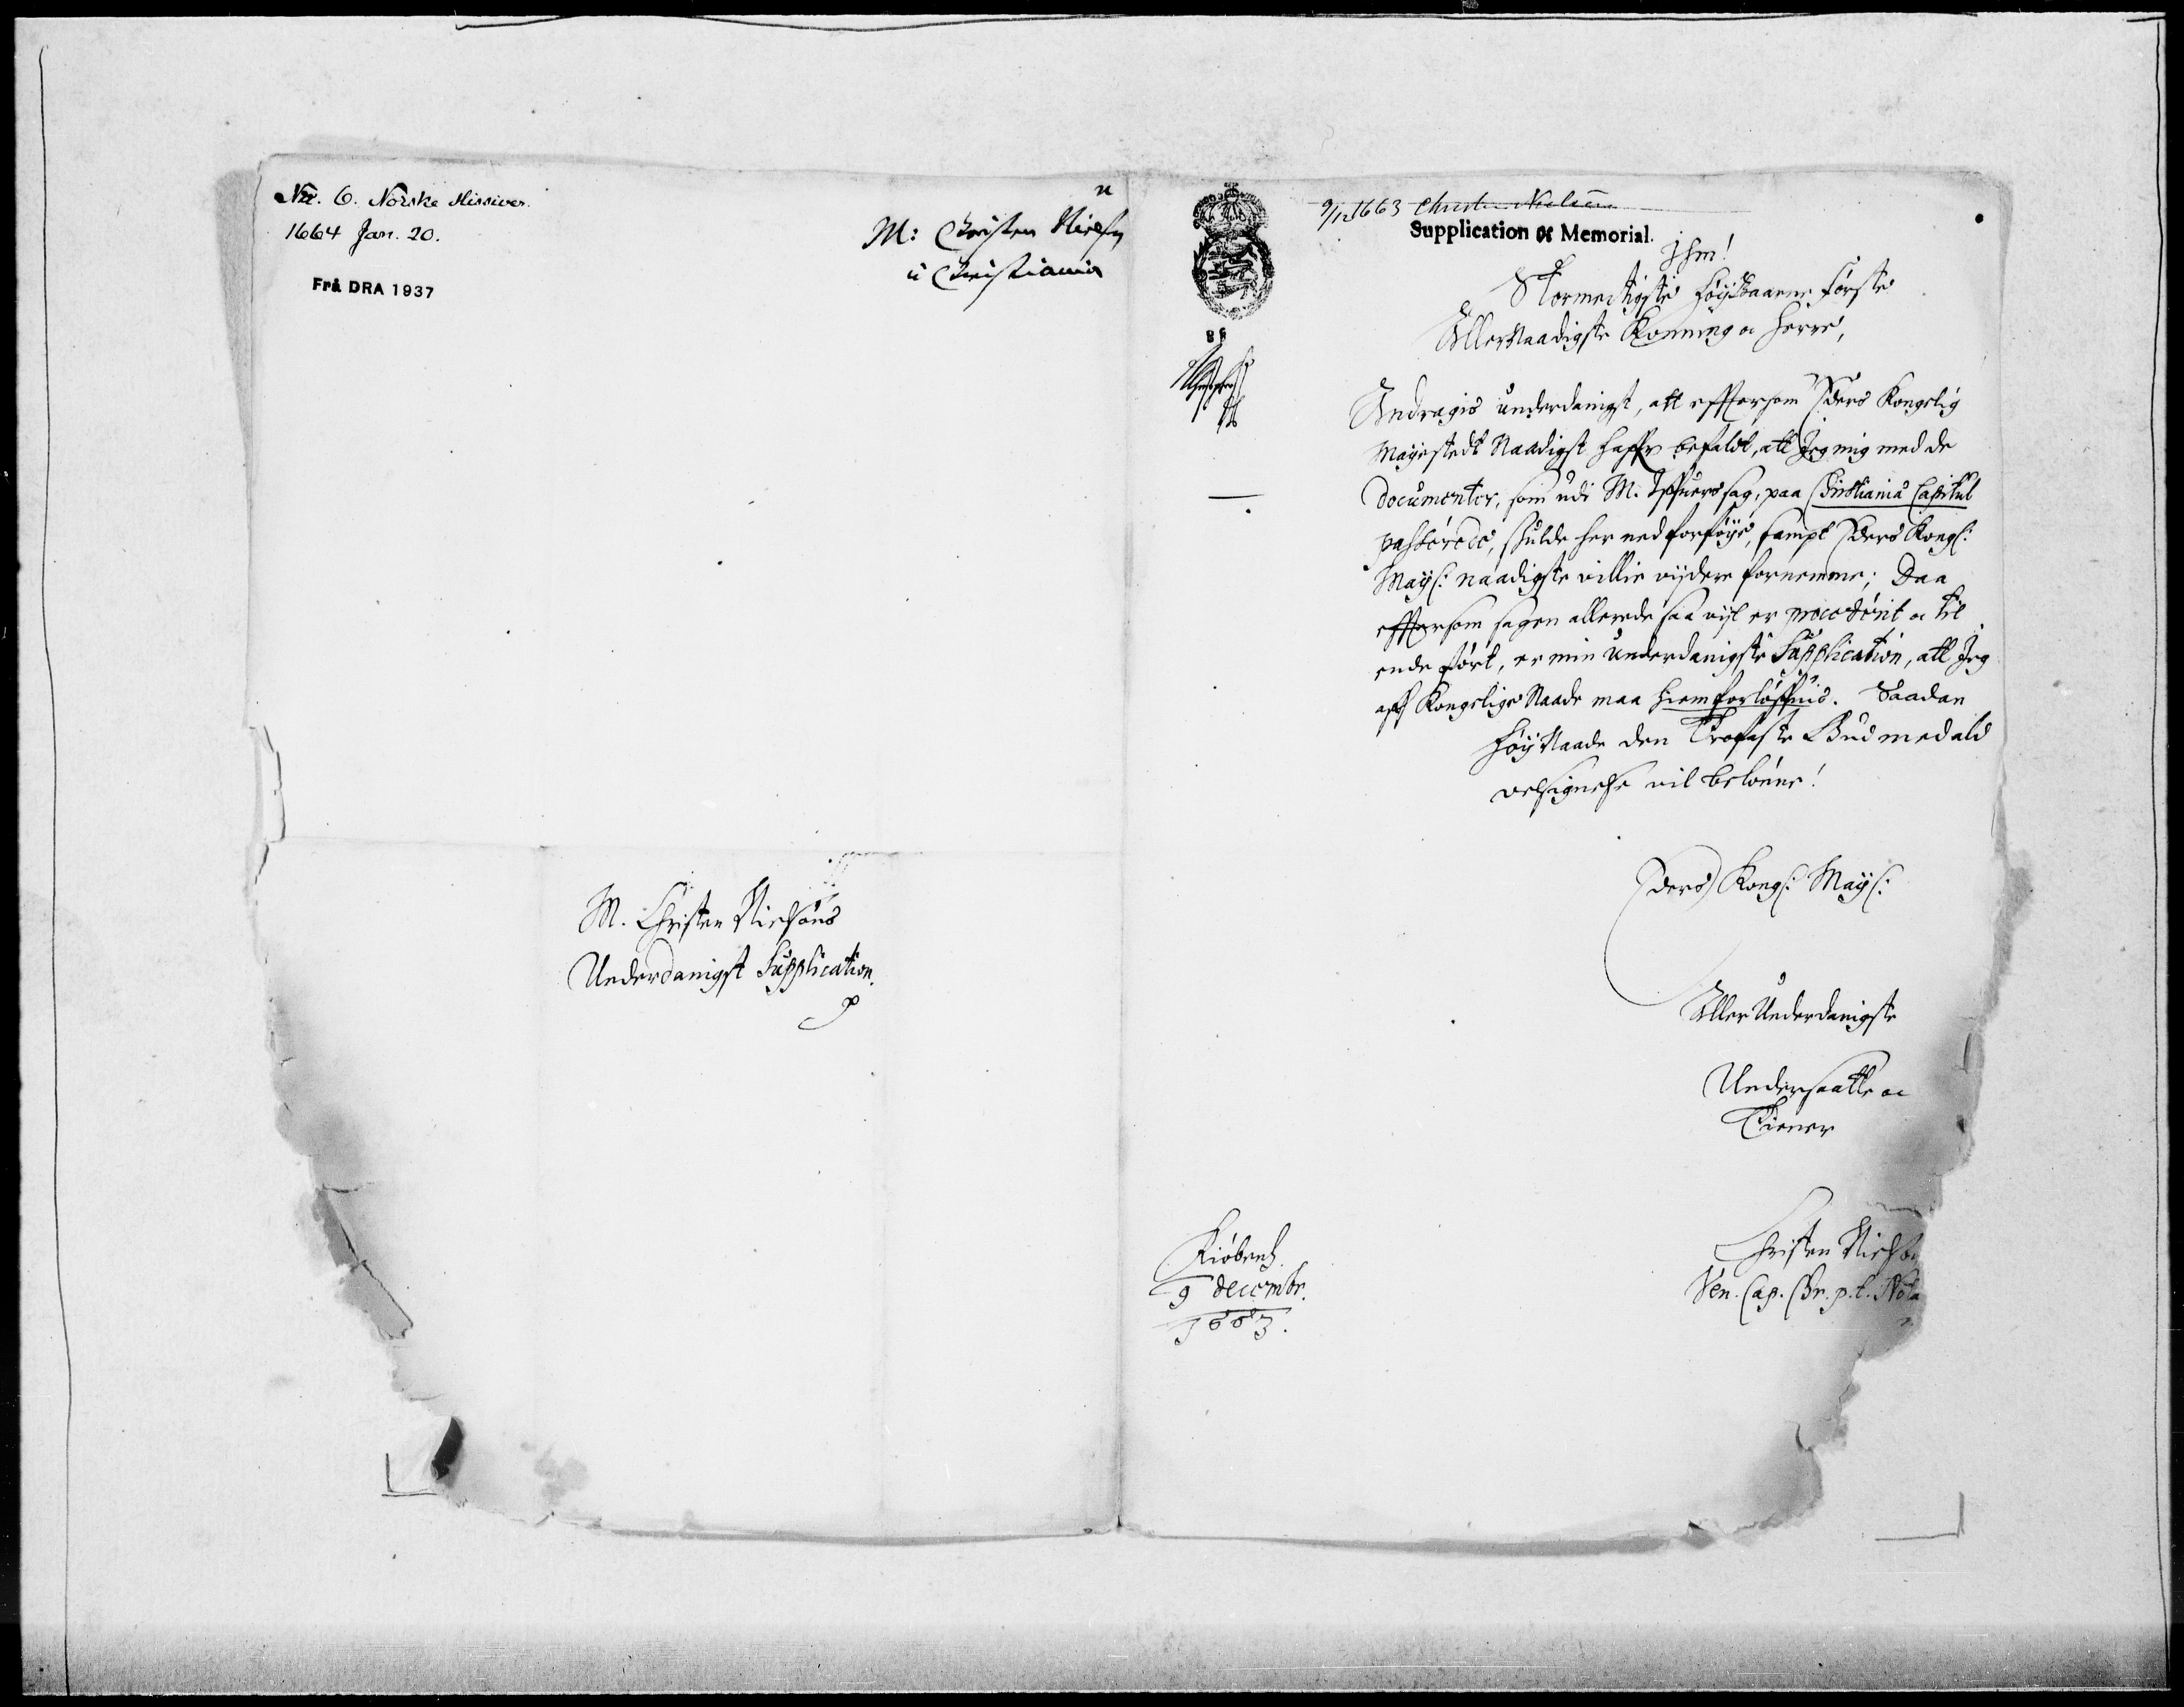 Nr. 6. Norske Missiver.
1664 Jan. 20.
Frå DRA 1937
M: Christen Nielss:
i Christiania
M. Christen Nielsøns
Underdanigst Supplication.
9/12 1663 Christen Nielsen
Supplication og Memorial.
Stormectigste Høybaarne Første
Allernaadigste Konning oc Herre,
Andragis underdanigst, att effttersom Eders Kongelig
Mayestedt Naadigst haffr befaldt, att Jeg mig med de
Documenter, som udi M. sag, paa Christiania Capitul
passerede, skulde her ned forføye, sampt Eders Kongl:
Mayst: naadigste villie vijdere fornemme; Daa
effttersom sagen allerede saa vijt er procederit oc til
ende fört, er min underdanigste Supplication, att Jeg
aff Kongelige Naade maa hiem forlöffvis. Saadan
höy Naade den Trofaste Gud med ald
velsignelse vil belönne!
Eders Kongl: Mayst:
Aller Underdanigste
Undersaatte oc
Tiener
Christen Nielsøn
Ven. Cap. Chr. p.t. Nota
Kiöbenh.
9 Decembr.
1663.